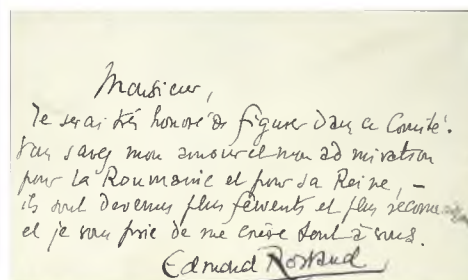 Monsieur,
Je serai très honoré de figurer dans ce Comité.
Vous savez mon amour et mon admiration
pour la Roumanie et pour sa Reine, –
ils sont devenus plus fervents et plus
et je vous prie de me croire tout à vous.
Edmond Rostand